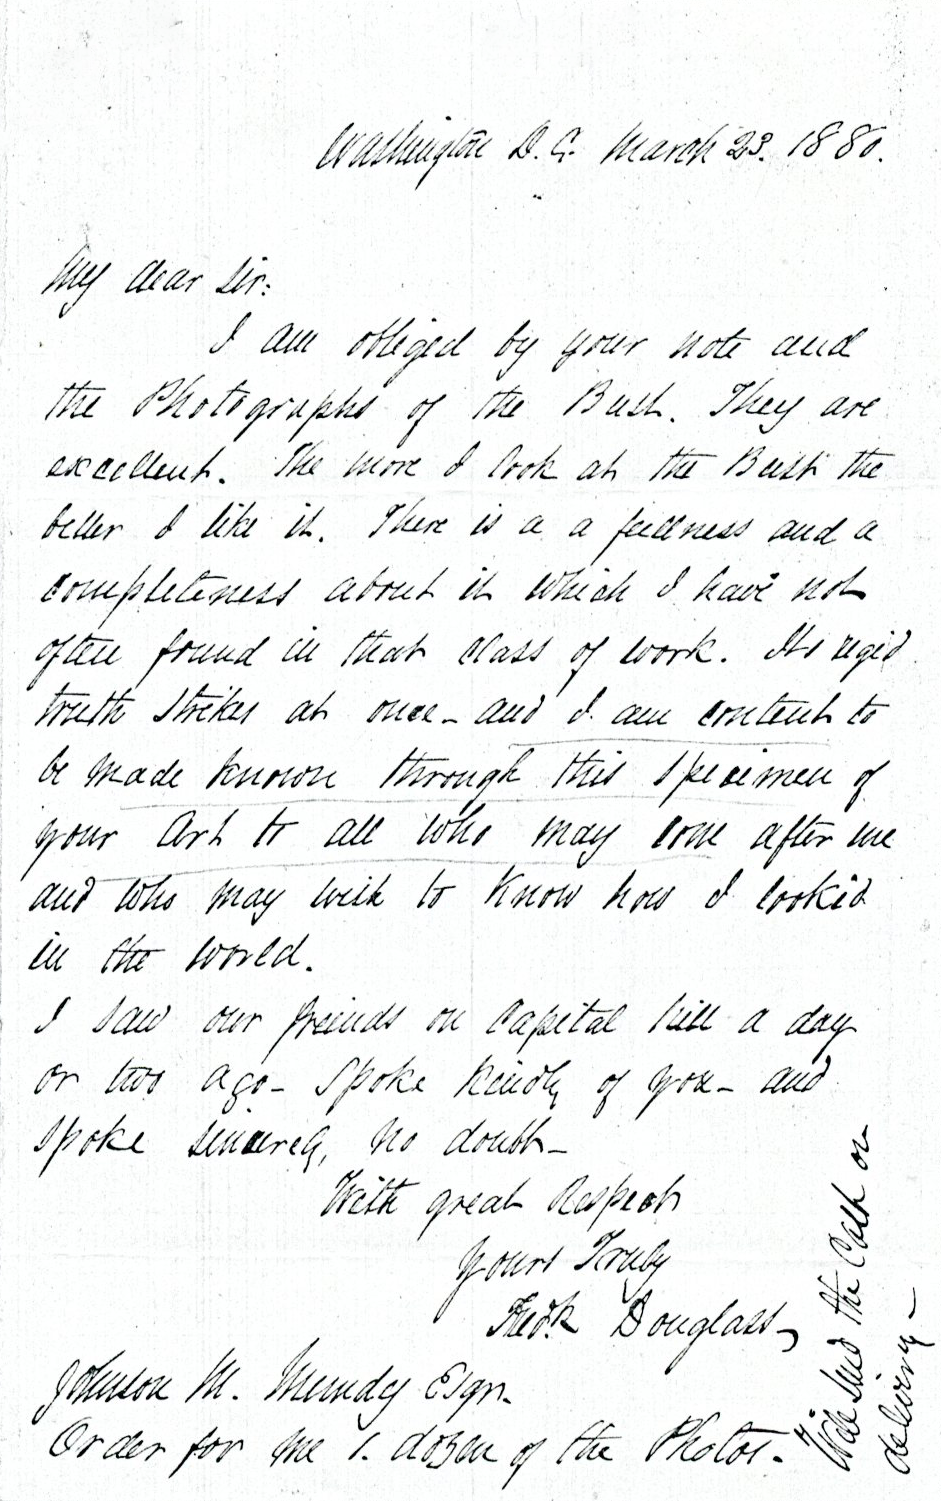 Washington D.C. March 23. 1880.
My dear Sir:
I am obliged by your note and
the Photographs of the Bust. They are
excellent. The more I look at the Bust the
better I like it. There is a a fullness and a
completeness about it which I have not
often found in that class of work. Its rigid
truth strikes at once – and I am content to
be made known through this specimen of
your Art to all who may come after me
and who may wish to know how I looked
in the world.
I saw our friends on Capital hill a day
or two ago – Spoke kindly of you – and
spoke sincerely, no doubt –
With great Respect
Yours Truly
Fredk Douglass
Johnson M. Mundy Esqr.
Order for me 1. dozen of the Photos. –
Will send the Cash on
delivery –